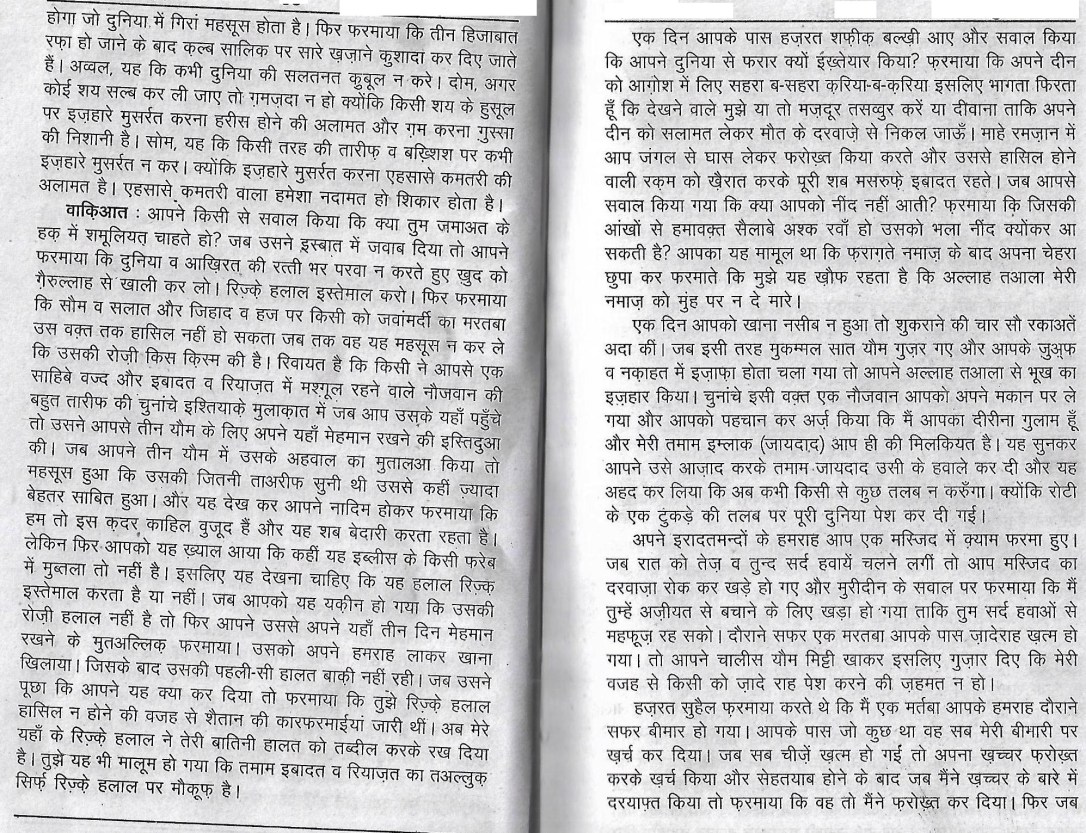 होगा जो दुनिया में गिरां महसूस होता है। फिर फरमाया कि तीन हिजाबात
रफ़ा हो जाने के बाद क़ल्ब सालिक पर सारे ख़ज़ाने कुशादा कर दिए जाते
हैं। अव्वल, यह कि कभी दुनिया की सलतनत क़ुबूल न करे। दोम, अगर
कोई शय सल्ब कर ली जाए तो ग़मज़दा न हो क्योंकि किसी शय के हुसूल
पर इज़हारे मुसर्रत करना हरीस होने की अलामत और ग़म करना ग़ुस्सा
की निशानी है। सोम, यह कि किसी तरह की तारीफ़ व बख़्शिश पर कभी
इज़हारे मुसर्रत न कर। क्योंकि इज़हारे मुसर्रत करना एहसासे कमतरी की
अलामत है। एहसासे कमतरी वाला हमेशा नदामत हो शिकार होता है।
वाक़िआत : आपने किसी से सवाल किया कि क्या तुम जमाअत के
हक़ में शमूलियत चाहते हो? जब उसने इस्बात में जवाब दिया तो आपने
फरमाया कि दुनिया व आख़िरत की रत्ती भर परवा न करते हुए ख़ुद को
गैरुल्लाह से खाली कर लो। रिज़्क़े हलाल इस्तेमाल करो। फिर फरमाया
कि सौम व सलात और जिहाद व हज पर किसी को जवांमर्दी का मरतबा
उस वक़्त तक हासिल नहीं हो सकता जब तक वह यह महसूस न कर ले
कि उसकी रोज़ी किस क़िस्म की है। रिवायत है कि किसी ने आपसे एक
साहिबे वज्द और इबादत व रियाज़त में मश्ग़ूल रहने वाले नौजवान की
बहुत तारीफ की चुनांचे इश्तियाक़े मुलाक़ात में जब आप उसके यहाँ पहुँचे
तो उसने आपसे तीन यौम के लिए अपने यहाँ मेहमान रखने की इस्तिदुआ
की। जब आपने तीन यौम में उसके अहवाल का मुतालआ किया तो
महसूस हुआ कि उसकी जितनी ताअरीफ सुनी थी उससे कहीं ज़्यादा
बेहतर साबित हुआ। और यह देख कर आपने नादिम होकर फरमाया कि
हम तो इस क़दर काहिल वुजूद हैं और यह शब बेदारी करता रहता है।
लेकिन फिर आपको यह ख्याल आया कि कहीं यह इब्लीस के किसी फरेब
में मुब्तला तो नहीं है। इसलिए यह देखना चाहिए कि यह हलाल रिज़्क़
इस्तेमाल करता है या नहीं। जब आपको यह यक़ीन हो गया कि उसकी
रोज़ी हलाल नहीं है तो फिर आपने उससे अपने यहाँ तीन दिन मेहमान
रखने के मुतअल्लिक़ फरमाया। उसको अपने हमराह लाकर खाना
खिलाया। जिसके बाद उसकी पहली-सी हालत बाक़ी नहीं रही। जब उसने
पूछा कि आपने यह क्या कर दिया तो फरमाया कि तुझे रिज़्क़े हलाल
हासिल न होने की वजह से शैतान की कारफरमाईयां जारी थीं। अब मेरे
यहाँ के रिज़्क़े हलाल ने तेरी बातिनी हालत को तब्दील करके रख दिया
है। तुझे यह भी मालूम हो गया कि तमाम इबादत व रियाज़त का तअल्लुक़
सिर्फ़ रिज़्क़े हलाल पर मौक़ूफ़ है।
एक दिन आपके पास हज़रत शफ़ीक़ बल्ख़ी आए और सवाल किया
कि आपने दुनिया से फरार क्यों इंख़्तेयार किया? फ़रमाया कि अपने दीन
को आग़ोश में लिए सहरा ब-सहरा क़रिया-ब-क़रिया इसलिए भागता फिरता
हूँ कि देखने वाले मुझे या तो मज़दूर तसव्वुर करें या दीवाना ताकि अपने
दीन को सलामत लेकर मौत के दरवाज़े से निकल जाऊँ। माहे रमज़ान में
आप जंगल से घास लेकर फरोख़्त किया करते और उससे हासिल होने
वाली रक़म को ख़ैरात करके पूरी शब मसरुफ़े इबादत रहते। जब आपसे
सवाल किया गया कि क्या आपको नींद नहीं आती? फरमाया कि जिसकी
आंखों से हमावक़्त सैलाबे अश्क रवाँ हो उसको भला नींद क्योंकर आ
सकती है? आपका यह मामूल था कि फ़राग़ते नमाज़ के बाद अपना चेहरा
छुपा कर फरमाते कि मुझे यह ख़ौफ रहता है कि अल्लाह तआला मेरी
नमाज़ को मुंह पर न दे मारे।
एक दिन आपको खाना नसीब न हुआ तो शुकराने की चार सौ रकाअतें
अदा कीं। जब इसी तरह मुकम्मल सात यौम गुज़र गए और आपके जुअ़फ
व नक़ाहत में इज़ाफ़ा होता चला गया तो आपने अल्लाह तआला से भूख का
इज़हार किया। चुनांचे इसी वक़्त एक नौजवान आपको अपने मकान पर ले
गया और आपको पहचान कर अर्ज़ किया कि मैं आपका दीरीना गुलाम हूँ
और मेरी तमाम इम्लाक (जायदाद) आप ही की मिलकियत है। यह सुनकर
आपने उसे आज़ाद करके तमाम जायदाद उसी के हवाले कर दी और यह
अहद कर लिया कि अब कभी किसी से कुछ तलब न करुँगा। क्योंकि रोटी
के एक टुंकड़े की तलब पर पूरी दुनिया पेश कर दी गई।
अपने इरादतमन्दों के हमराह आप एक मस्जिद में क़्याम फरमा हुए।
जब रात को तेज़ व तुन्द सर्द हवायें चलने लगीं तो आप मस्जिद का
दरवाज़ा रोक कर खड़े हो गए और मुरीदीन के सवाल पर फरमाया कि मैं
तुम्हें अज़ीयत से बचाने के लिए खड़ा हो गया ताकि तुम सर्द हवाओं से
महफूज़ रह सको। दौराने सफर एक मरतबा आपके पास ज़ादेराह ख़त्म हो
गया। तो आपने चालीस यौम मिट्टी खाकर इसलिए गुज़ार दिए कि मेरी
वजह से किसी को ज़ादे राह पेश करने की ज़हमत न हो।
हज़रत सुहैल फ़रमाया करते थे कि मैं एक मर्तबा आपके हमराह दौराने
सफर बीमार हो गया। आपके पास जो कुछ था वह सब मेरी बीमारी पर
ख़र्च कर दिया। जब सब चीज़ें ख़त्म हो गईं तो अपना ख़च्चर फ़रोख़्त
करके ख़र्च किया और सेहतयाब होने के बाद जब मैंने ख़च्चर के बारे में
दरयाफ़्त किया तो फ़रमाया कि वह तो मैंने फ़रोख़्त कर दिया। फिर जब